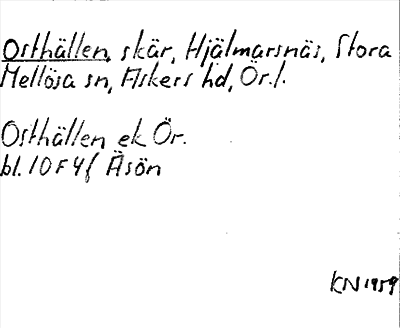 Osthällen, skär, Hjälmarsnäs, Stora
Mellösa sn, Askers hd, Ör. l.
Osthällen ek Ör.
bl. 10 F 4 f Äsön
KN 1959